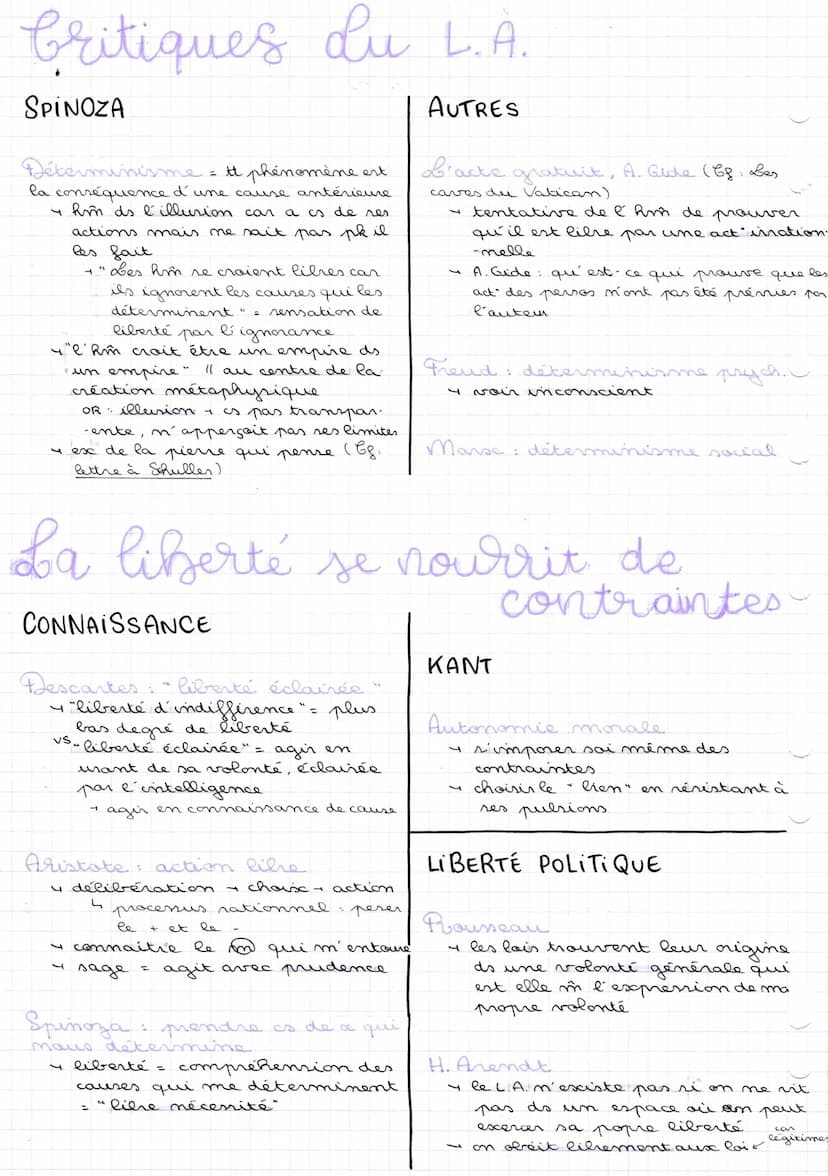 Critiques du L.A.
SPINOZA
Déterminisme = tt phénomène est
la conséquence d'une cause antérieure
→ hm ds l'illusion car a cs de ses
actions mais ne sait pas pk il
les fait
→ "Les hm se croient libres car
ils ignorent les causes qui les
déterminent" = sensation de
liberté par l'ignorance
→ "l'hm croit être un empire ds
un empire" // au centre de la
création métaphysique
OR : illusion → cs pas transpar-
-ente, n'apperçoit pas ses limites
→ ex de la pierre qui pense (Cf.
lettre à Schuller)
AUTRES
L'acte gratuit, A. Gide (Cf. Les
caves du Vatican)
→ tentative de l'hm de prouver
qu'il est libre par une act° irration-
-nelle
→ A. Gide : qu'est-ce qui prouve que les
act° des persos n'ont pas été prévues par
l'auteur
Freud : déterminisme psych.
→ voir inconscient
Marx : déterminisme social
La liberté se nourrit de
contraintes
CONNAISSANCE
Descartes : "liberté éclairée"
→ "liberté d'indifférence" = plus
bas degré de liberté
vs "liberté éclairée" = agir en
usant de sa volonté, éclairée
par l'intelligence
→ agir en connaissance de cause
Aristote : action libre
→ délibération → choix → action
↳ processus rationnel : peser
le + et le -
→ connaitre le m qui m'entoure
→ sage = agit avec prudence
Spinoza : prendre cs de ce qui
nous détermine
→ liberté = compréhension des
causes qui me déterminent
= "libre nécessité"
KANT
Autonomie morale
→ s'imposer soi même des
contraintes
→ choisir le "bien" en résistant à
ses pulsions
LIBERTÉ POLITIQUE
Rousseau
→ les lois trouvent leur origine
ds une volonté générale qui
est elle m̂ l'expression de ma
propre volonté
H. Arendt
→ le L.A. n'existe pas si on ne vit
pas ds un espace où on peut
exercer sa propre liberté
→ on obéit librement aux lois car légitimes